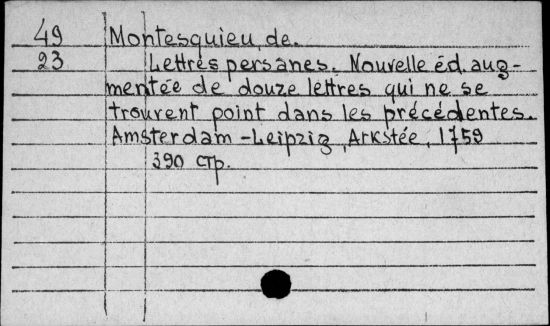 49 Montesquieu, de.
23 Lettres persanes. Nouvelle éd. aug-
mentée de douze lettres qui ne se
trouvent point dans les précédentes.
Amsterdam-Leipzig, Arkstée, 1759
390 стр.